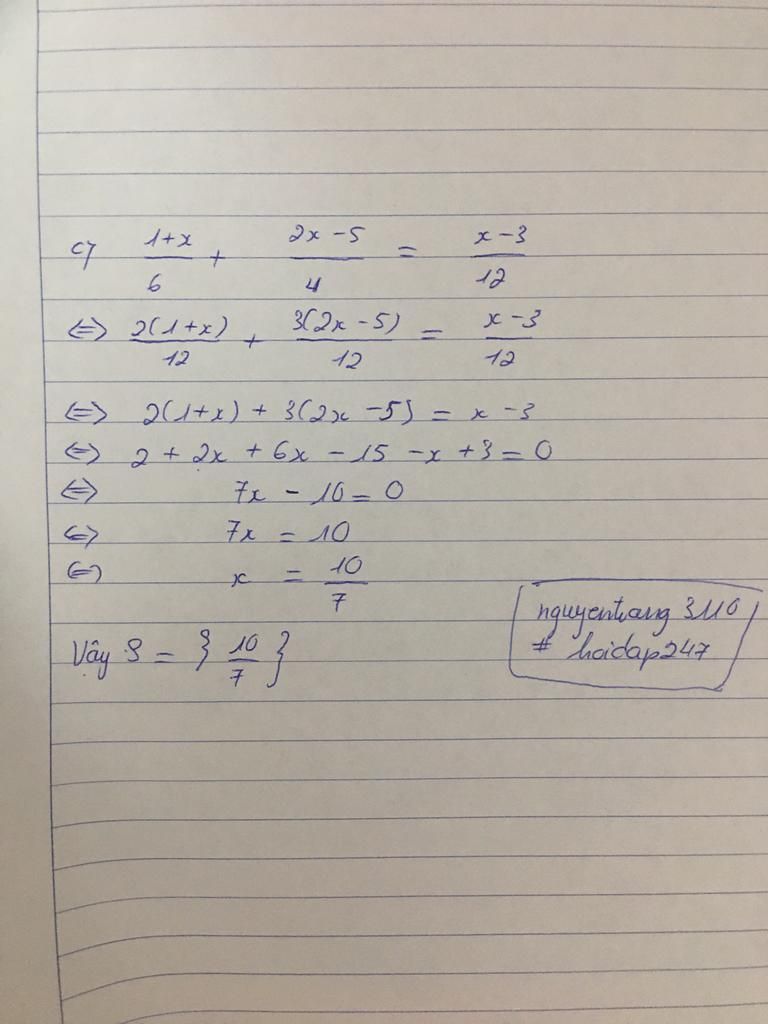 c) (1+x)/6 + (2x-5)/4 = (x-3)/12
<=> 2(1+x)/12 + 3(2x-5)/12 = (x-3)/12
<=> 2(1+x) + 3(2x-5) = x-3
<=> 2 + 2x + 6x - 15 - x + 3 = 0
<=> 7x - 10 = 0
<=> 7x = 10
<=> x = 10/7
Vậy S = { 10/7 }
nguyentrang 3110
# hoidap247